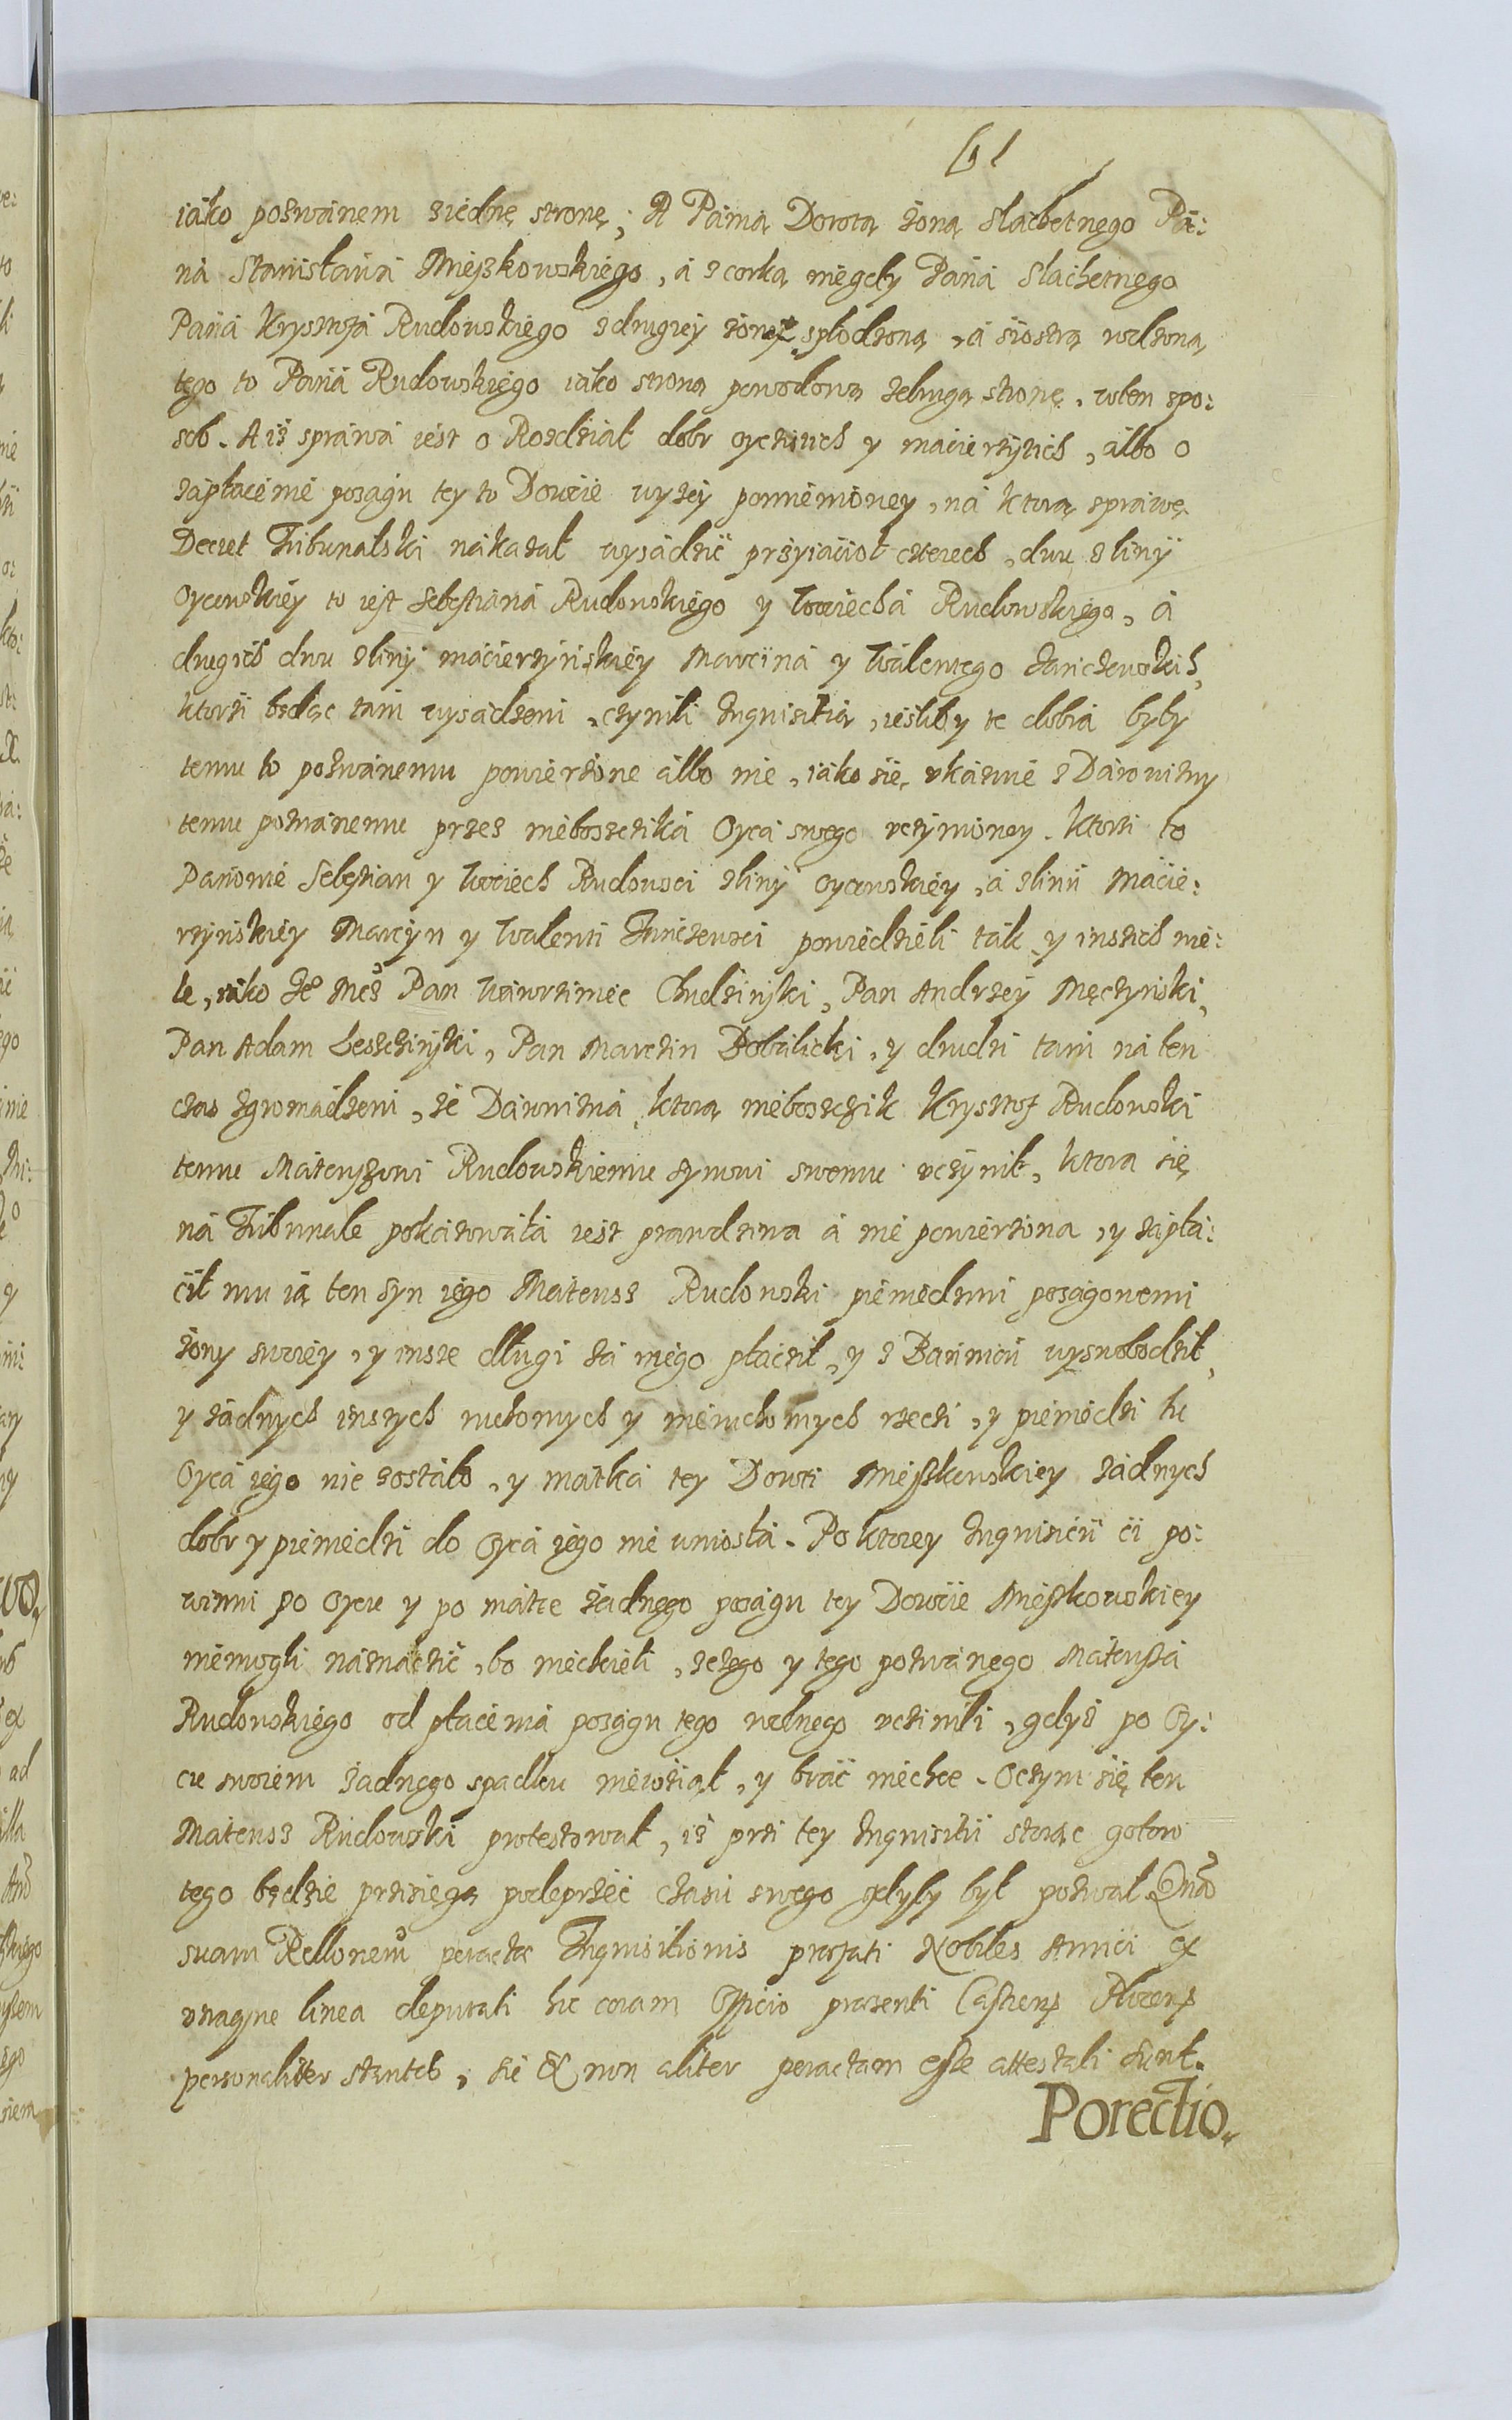 61
iáko pozwánem ziednę stronę; A Pánią Dorotą żoną slachetnego Pá:
ná Stanisłáwá Miejszkowskiego, á z corką niegdy Páná Slachetnego
Páná Krysztofá Rudowskiego z drugiey żoney spłodzoną, á siostrą rodzoną
tego to Páná Rudowskiego iáko stroną powodową zdrugą stronę, wten spo:
sob. A iż spráwá iest o Rozdział dobr oyczistich y macierzystich, álbo o
zapłácenié poságu tey to Dorocie wyżey pomienioney, ná ktorą spráwę
Decret Tribunalski nákazał wysádzić przyiaciół czterech, dwu z liniy
oycowskiéy to iest Sebestianá Rudowskiégo y Woiciechá Rudowskiégo, á
drugich dwu z liniy máciérzyńskiéy Marciná y Wálentego
ktorzi będąc tám wysádzeni, czynili Inquisitią, iésliby te dobrá były
temu to pozwánemu powierzone álbo nie, iáko się vkázuié z Dárowizny
temu pozwánemu przez niéboszczika Oycá swego vczynioney. Ktorzi to
Pánowié Sebestian y Woiciech Rudowsci z liniy oycowskiéy, á z linii Mácie:
rzyńskiéy Marcyn y Walenti powiédziéli ták y inszich wié:
le, iáko Je° Mcz Pan Wáwrziniec Chudzinski, Pan Andrzéy Męczyński,
Pan Adam Leszczinski, Pan Marczin Dobálicki, y drudzi tám ná ten
czas zgromádzeni, że Dárowizná, ktorą niéboszczik Krysztof Rudowski
temu Máteuszowi Rudowskiému synowi swemu vczynił, ktora się
ná Tribunale pokázowáłá iest prawdziwa á nié powierzona, y zápłá:
cił mu ią ten syn iégo Máteusz Rudowski piéniędzmi poságowemi
żony swoiéy, y insze długi zá niégo płácził, y z Bánniciÿ wyswobodził,
y żádnych inszych ruchomych y niéruchomych rzeczi, y piéniédzi tu
Oycá iégo nie zostáło, y mátká tey Doroti Miéjszkowskiey żádnych
dobr y piéniédzi do Oycá iégo nié wniosłá. Po ktorey Inquisicii ci po:
winni po oycu y po mátce żádnego poságu tey Dorocie Miéjszkowskiey
niémogli náznaczić, bo niéchciéli, zczego y tego pozwánego Máteuszá
Rudowskiégo od płácéniá poságu tego wolnego vczinili, gdyż po Oy:
cu swoiém żádnego spadku niéwziął, y bráć niéchce. Oczym się ten
Máteusz Rudowski protestował, iż przi tey Inquisitii stoiąc gotow
tego będzié przisięgą podeprzéć czasu swego gdyby był pozwał Qua
suam Rellonem peractae Inquisitionis praefati Nobiles Amici ex
vtraque linea deputati hic coram Officio praesenti Castrens
personaliter stantes, sic & non aliter peractam esse attestati sunt.
Porectio.